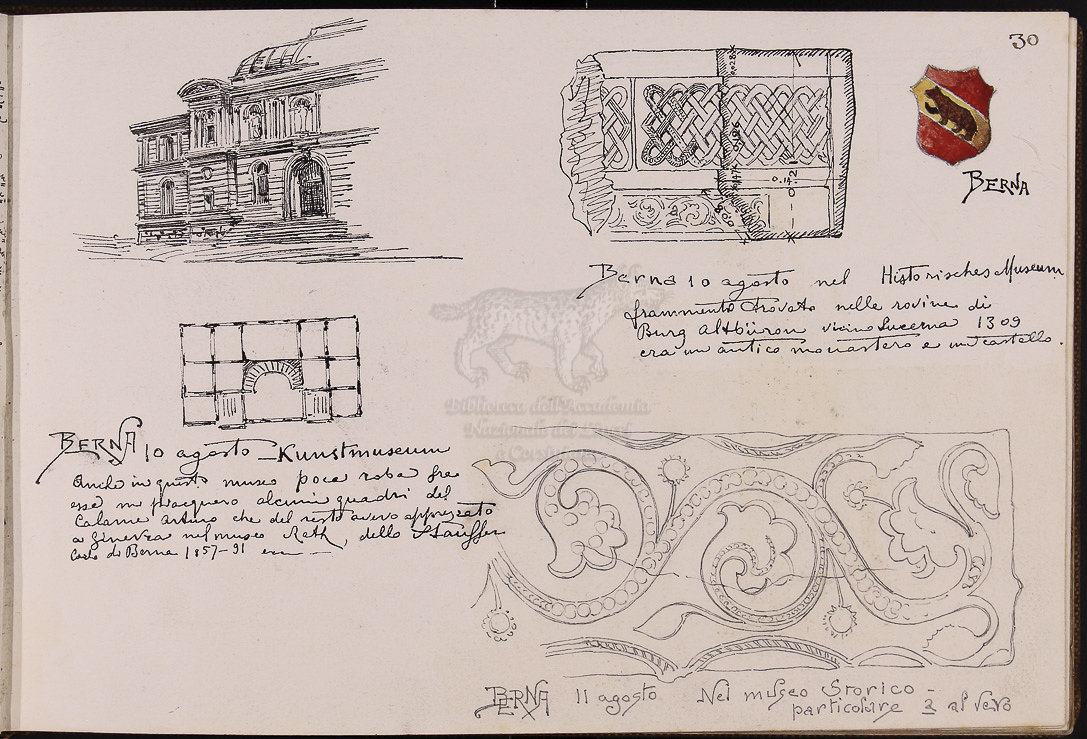 30
BERNA
0.028
0.196
0.147
0.14
0.421
Berna 10 agosto nel Historisches Museum
frammento trovato nelle rovine di
Burg Altbüron vicino Lucerna 1309
era un antico monastero e un castello.
Biblioteca dell'Accademia
Nazionale dei Lincei
e Corsiniana
BERNA 10 agosto Kunstmuseum
Anche in questo museo poca roba fra
esse mi piacquero alcuni quadri del
Calame Arturo che del resto avevo apprezzato
a Ginevra nel museo Rath, dello Stauffer
Carlo di Berna 1857-91
BERNA 11 agosto Nel museo Storico -
particolare al vero